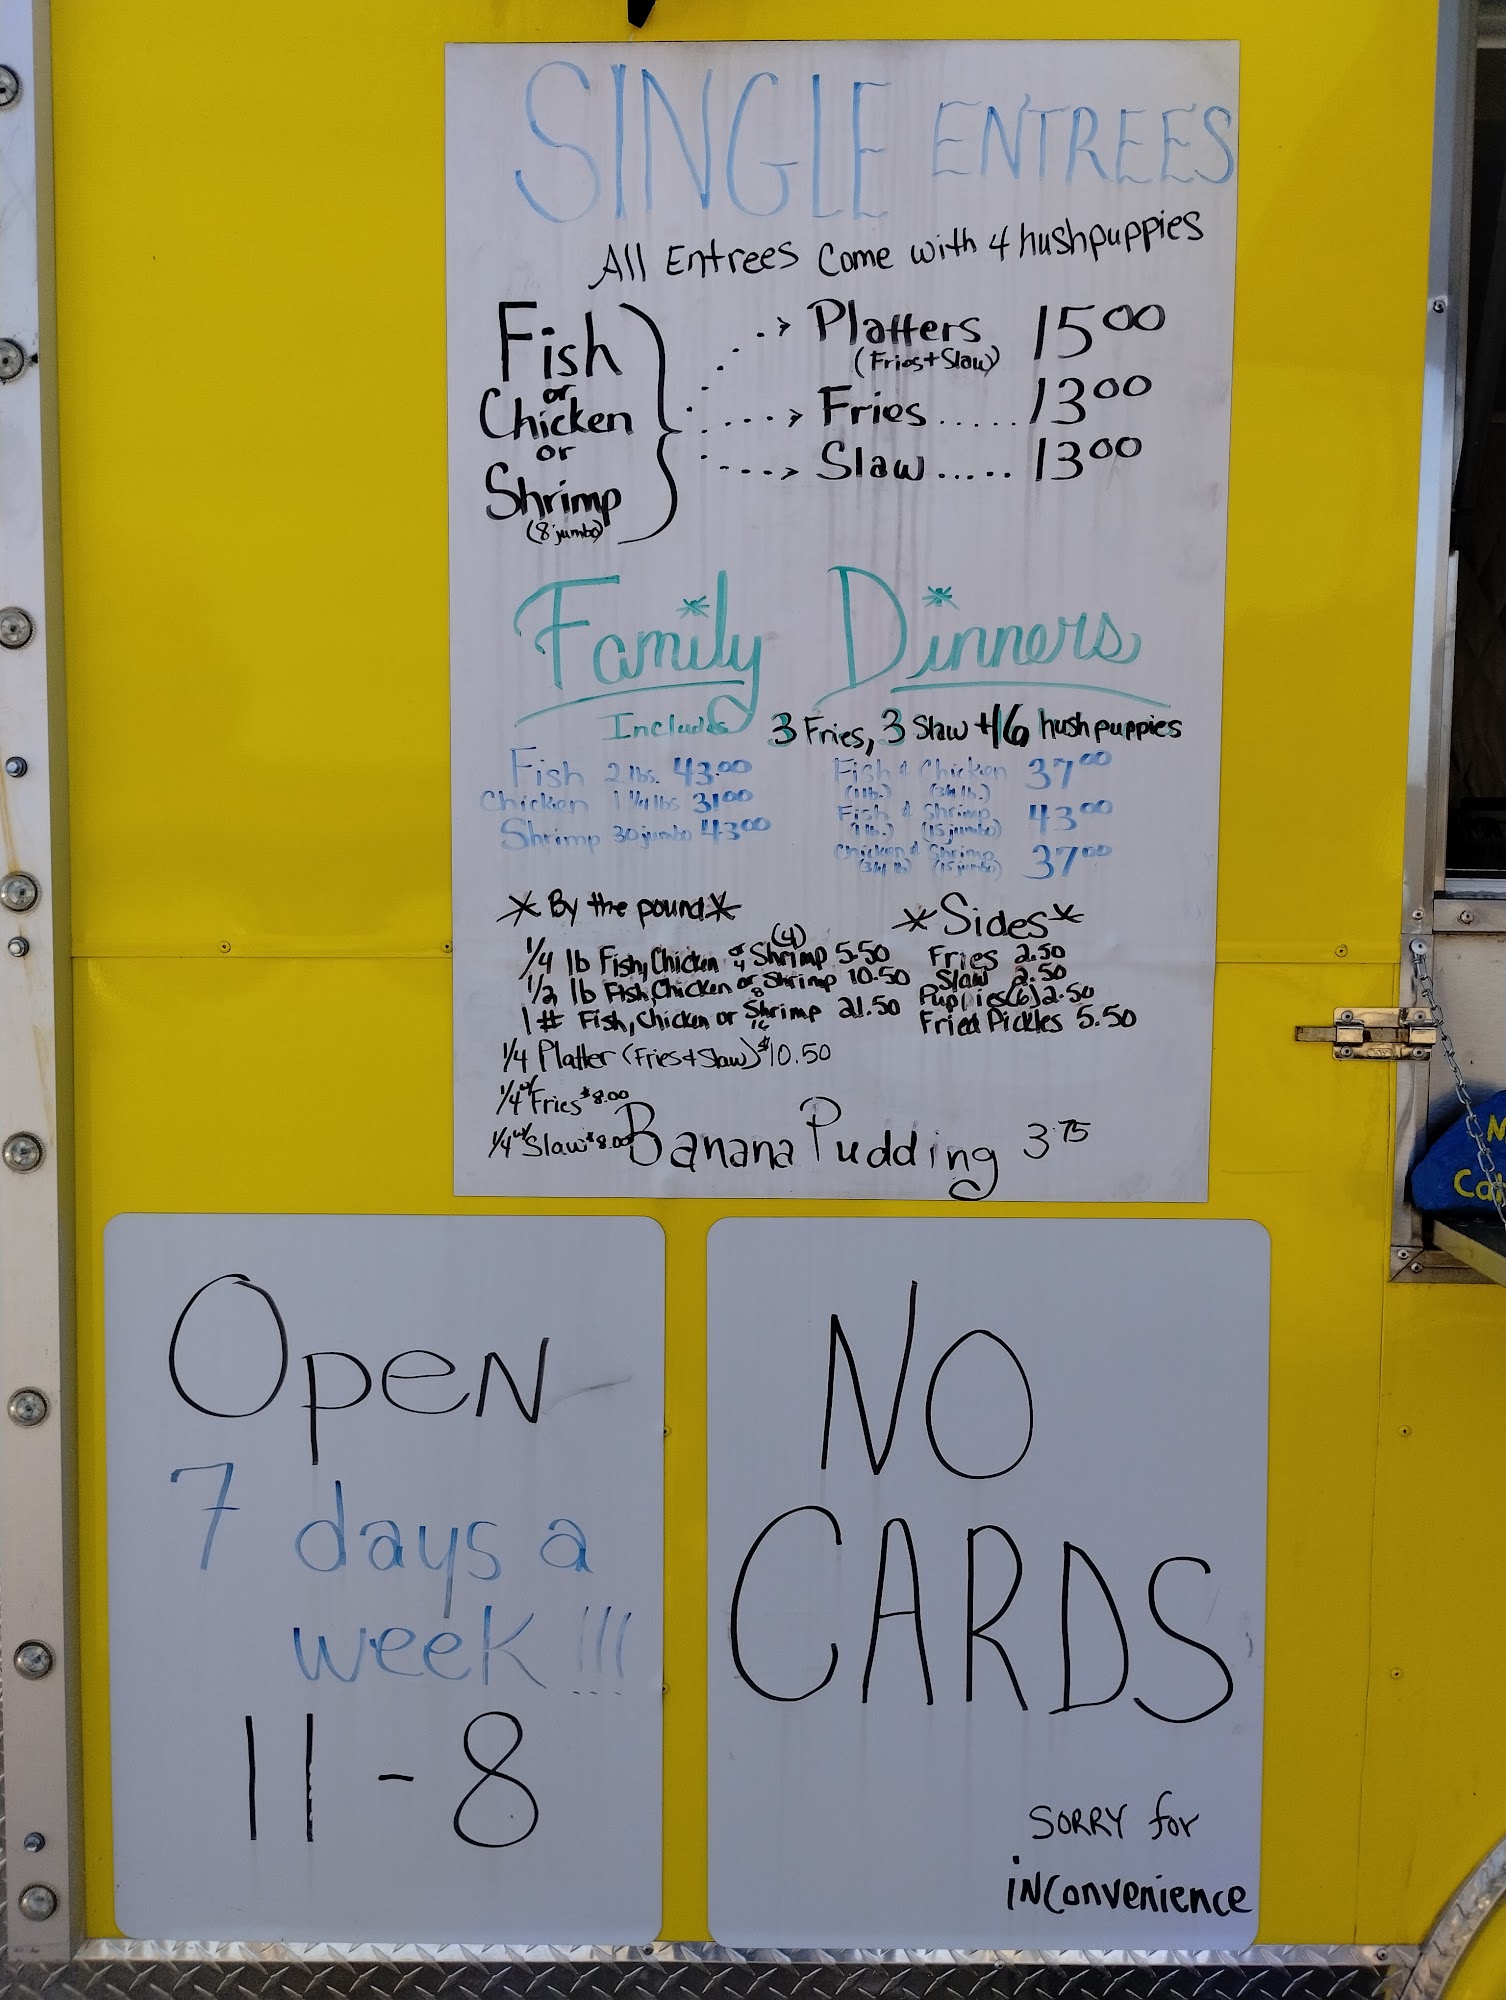 SINGLE ENTREES
All Entrees Come with 4 hushpuppies
Fish
or
Chicken
or
Shrimp
(8 jumbo)
Platters 15.00
(Fries+Slaw)
Fries..... 13.00
Slaw..... 13.00
*Family Dinners*
Includes 3 Fries, 3 Slaw + 16 hushpuppies
Fish 2 lbs. 43.00
Chicken 1 1/4 lbs 31.00
Shrimp 30 jumbo 43.00
Fish & Chicken 37.00
(1 lb.) (3/4 lb.)
Fish & Shrimp 43.00
(1 lb.) (15 jumbo)
Chicken & Shrimp 37.00
(3/4 lb) (15 jumbo)
*By the pound*
1/4 lb Fish, Chicken or (4) Shrimp 5.50
4
1/2 lb Fish, Chicken or Shrimp 10.50
8
1# Fish, Chicken or Shrimp 21.50
16
1/4 Platter (Fries+Slaw) $10.50
1/4 w/ Fries $8.00
1/4 w/ Slaw $8.00
*Sides*
Fries 2.50
Slaw 2.50
Puppies (6) 2.50
Fried Pickles 5.50
Banana Pudding 3.75
Open
7 days a
week!!!
11-8
NO
CARDS
SORRY for
inconvenience